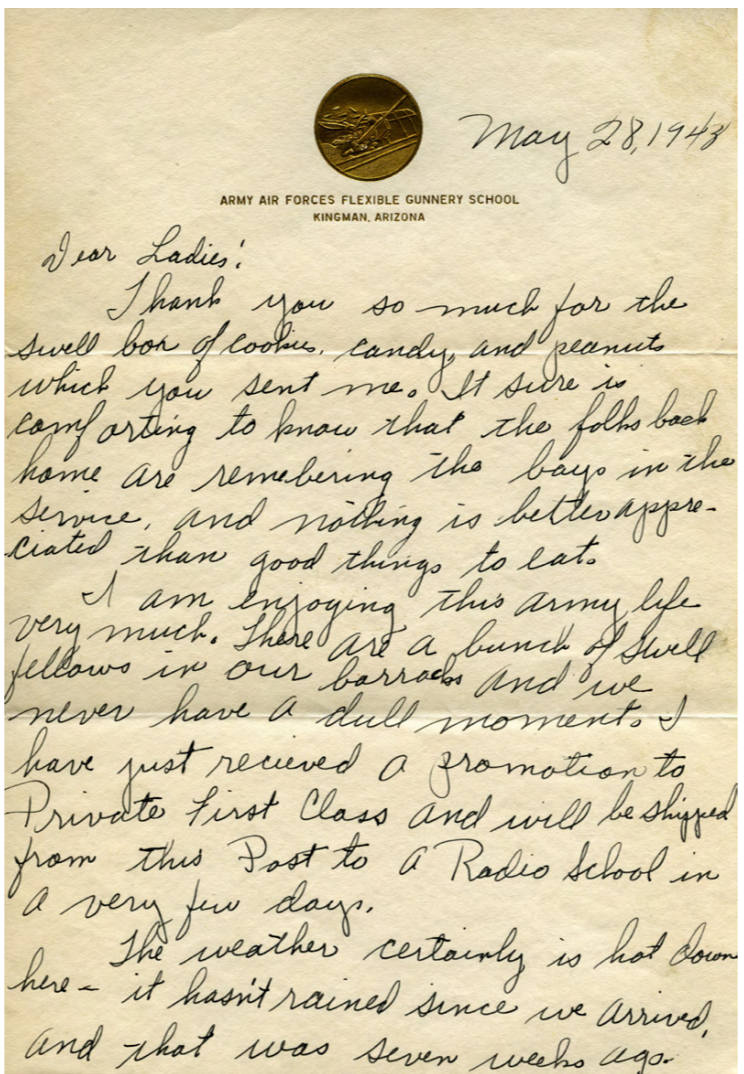 May 28, 1943
ARMY AIR FORCES FLEXIBLE GUNNERY SCHOOL
KINGMAN, ARIZONA
Dear Ladies:
Thank you so much for the
swell box of cookies, candy, and peanuts
which you sent me. It sure is
comforting to know that the folks back
home are remebering the boys in the
service, and nothing is better appre-
ciated than good things to eat.
I am enjoying this army life
very much. There are a bunch of swell
fellows in our barracks and we
never have a dull moment. I
have just recieved a promotion to
Private First Class and will be shipped
from this Post to a Radio School in
a very few days.
The weather certainly is hot down
here - it hasn't rained since we arrived,
and that was seven weeks ago.